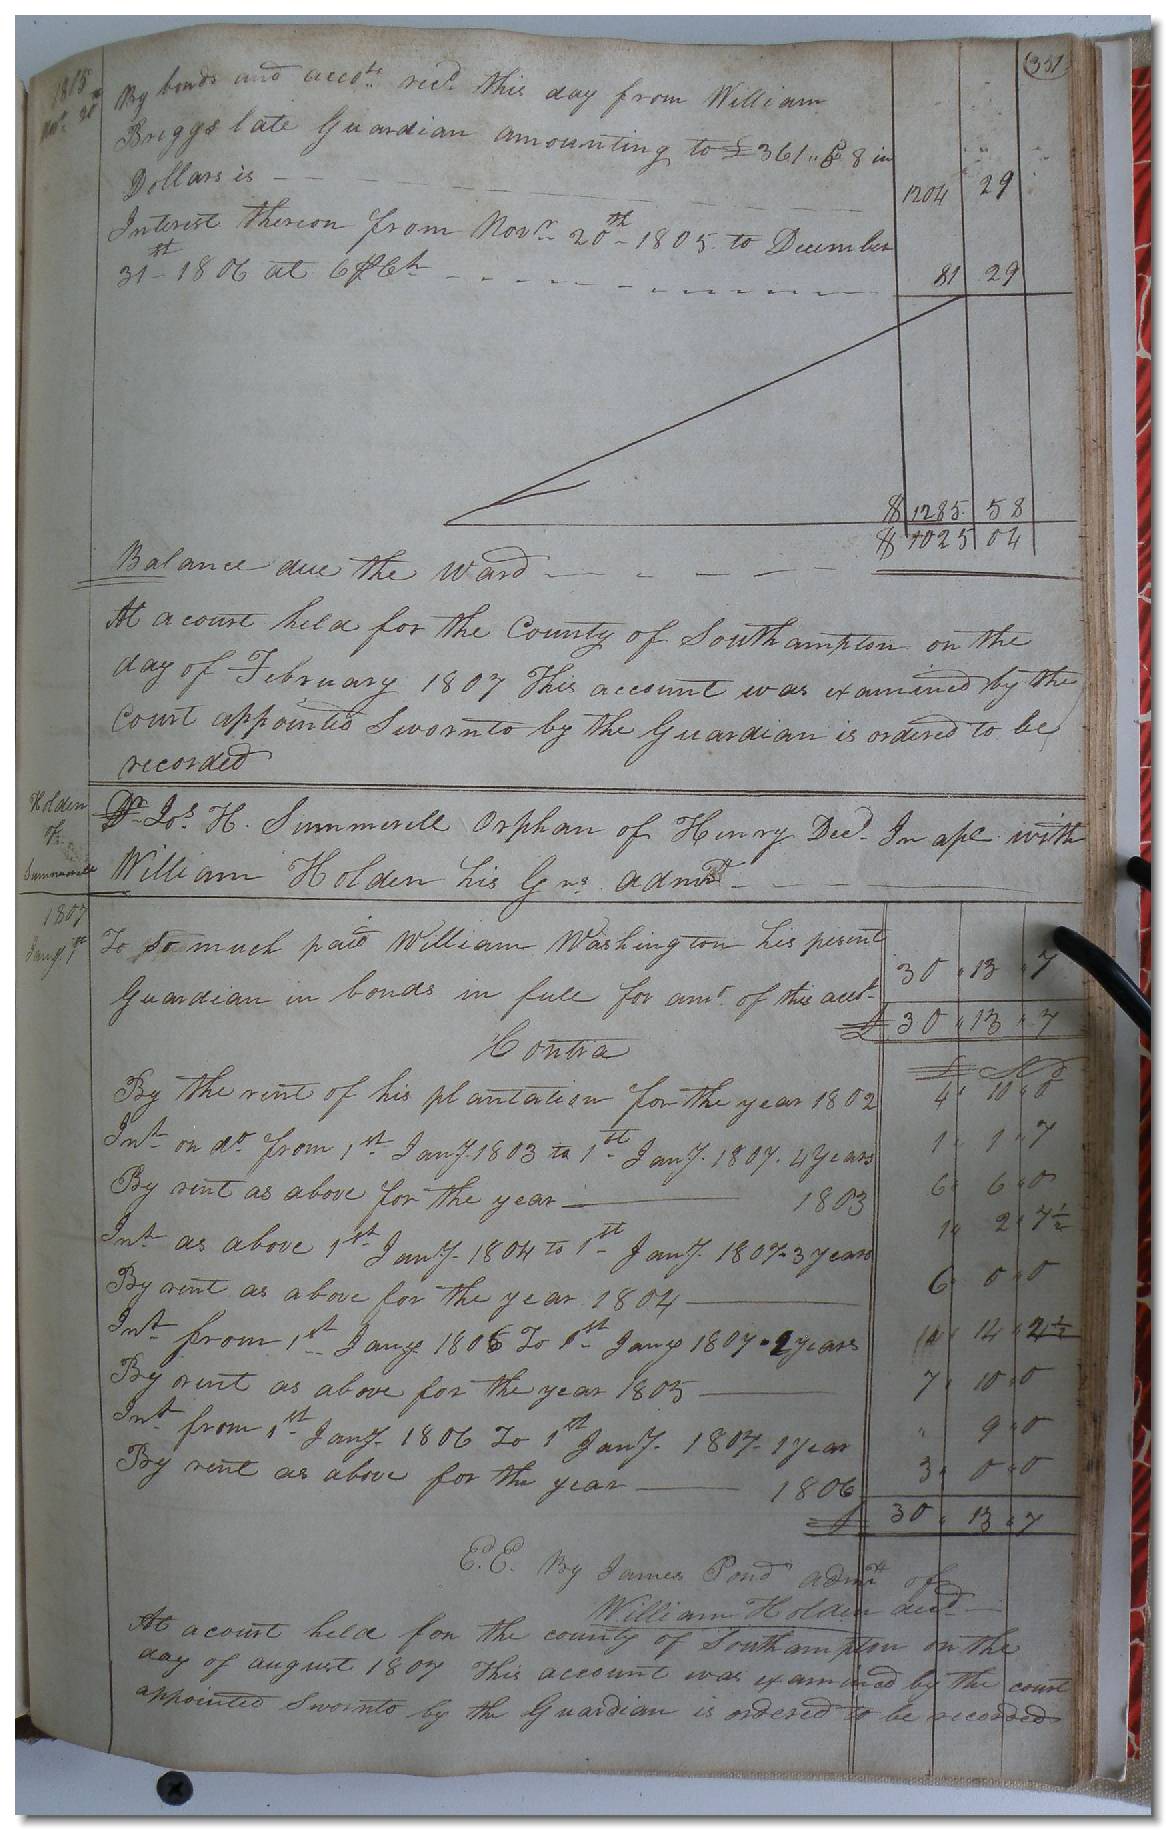 (351)
1805
Nov. 20 By bonds and accots. recd. this day from William
Briggs late Guardian amounting to £361.. 5 8 in
Dollars is 1204 29
Interest thereon from Novr. 20th 1805 to December
31st 1806 at 6 pCt 81 29
$ 1285. 58
Balance due the Ward $ 1025 04
At a court held for the County of Southampton on the
day of February 1807 This account was examined by the
Court appointed Sworn to by the Guardian is ordered to be
recorded
Holden
of
Summerell
Dr. Jos. H. Summerell Orphan of Henry Decd. In apc. with
William Holden his Gns. admr.
1807
Jany 1st To so much paid William Washington his present
Guardian in bonds in full for amt. of this acct. 30 " 13 " 7
£ 30 " 13 " 7
Contra £ S D
By the rent of his plantation for the year 1802 4 " 10 " 0
Int. on do. from 1st Jany. 1803 to 1st Jany. 1807. 4 Years 1 " 1 " 7
By rent as above for the year 1803 6 " 6 " 0
Int. as above 1st Jany. 1804 to 1st Jany. 1807. 3 years 1 " 2 " 7½
By rent as above for the year 1804 6 " 0 " 0
Int. from 1st Jany 1805 To 1st Jany 1807. 2 years 14 " 4½
By rent as above for the year 1805 7 " 10 " 0
Int. from 1st Jany. 1806 To 1st Jany. 1807. 1 year " 9 " 0
By rent as above for the year 1806 3 " 0 " 0
£ 30 " 13 " 7
E.E. By James Pond admr. of
William Holden decd.
At a court held for the county of Southampton on the
day of august 1807 This account was examined by the court
appointed Sworn to by the Guardian is ordered to be recorded